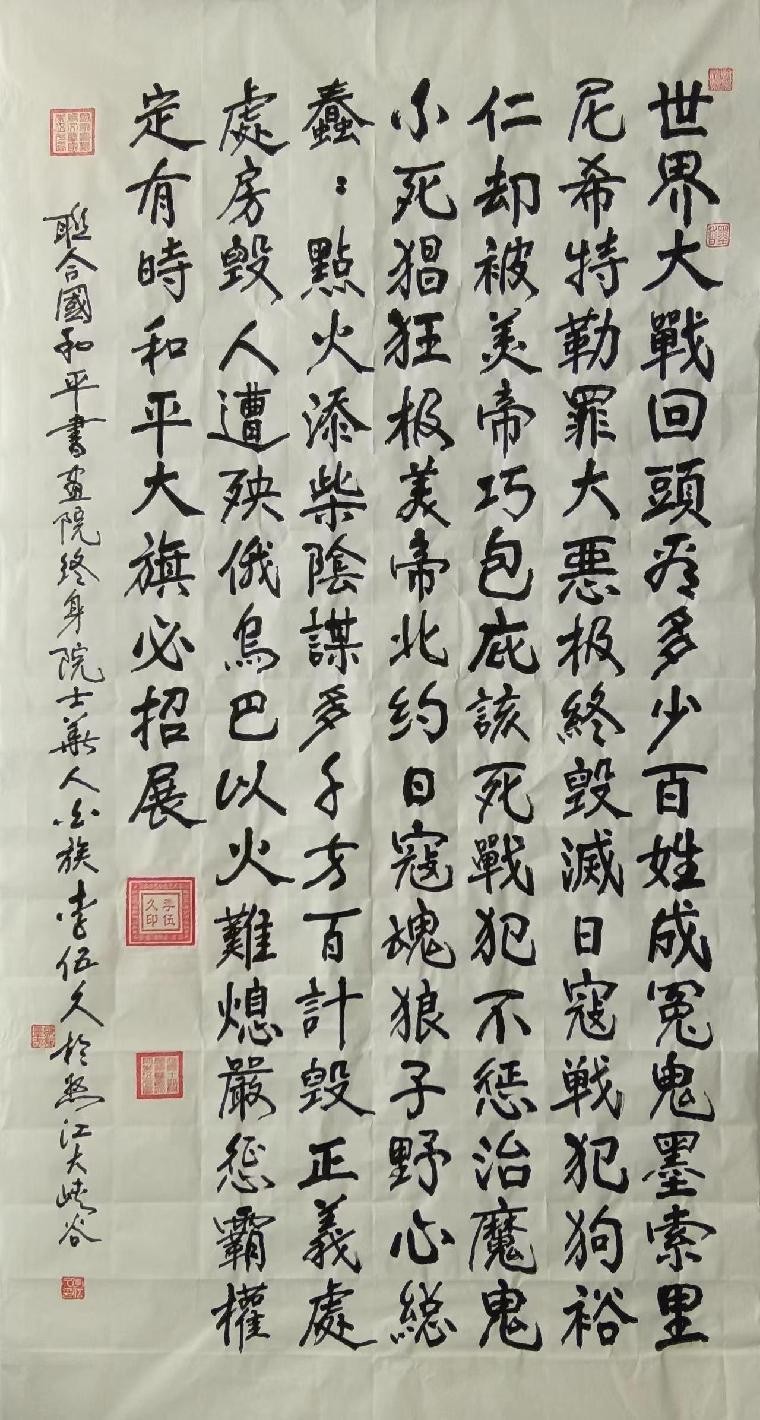 世界大戰回頭看多少百姓成冤鬼墨索里
尼希特勒罪大悪极終毀滅日寇戦犯狗裕
仁却被美帝巧包庇該死戰犯不惩治魔鬼
不死猖狂极美帝北约日寇魂狼子野心総
蠢〻點火添柴陰謀多千方百計毀正義處
處房毀人遭殃俄烏巴以火難熄嚴惩霸權
定有時和平大旗必招展
聯合國和平書画院终身院士華人白族李伍久於怒江大峡谷
李伍久印